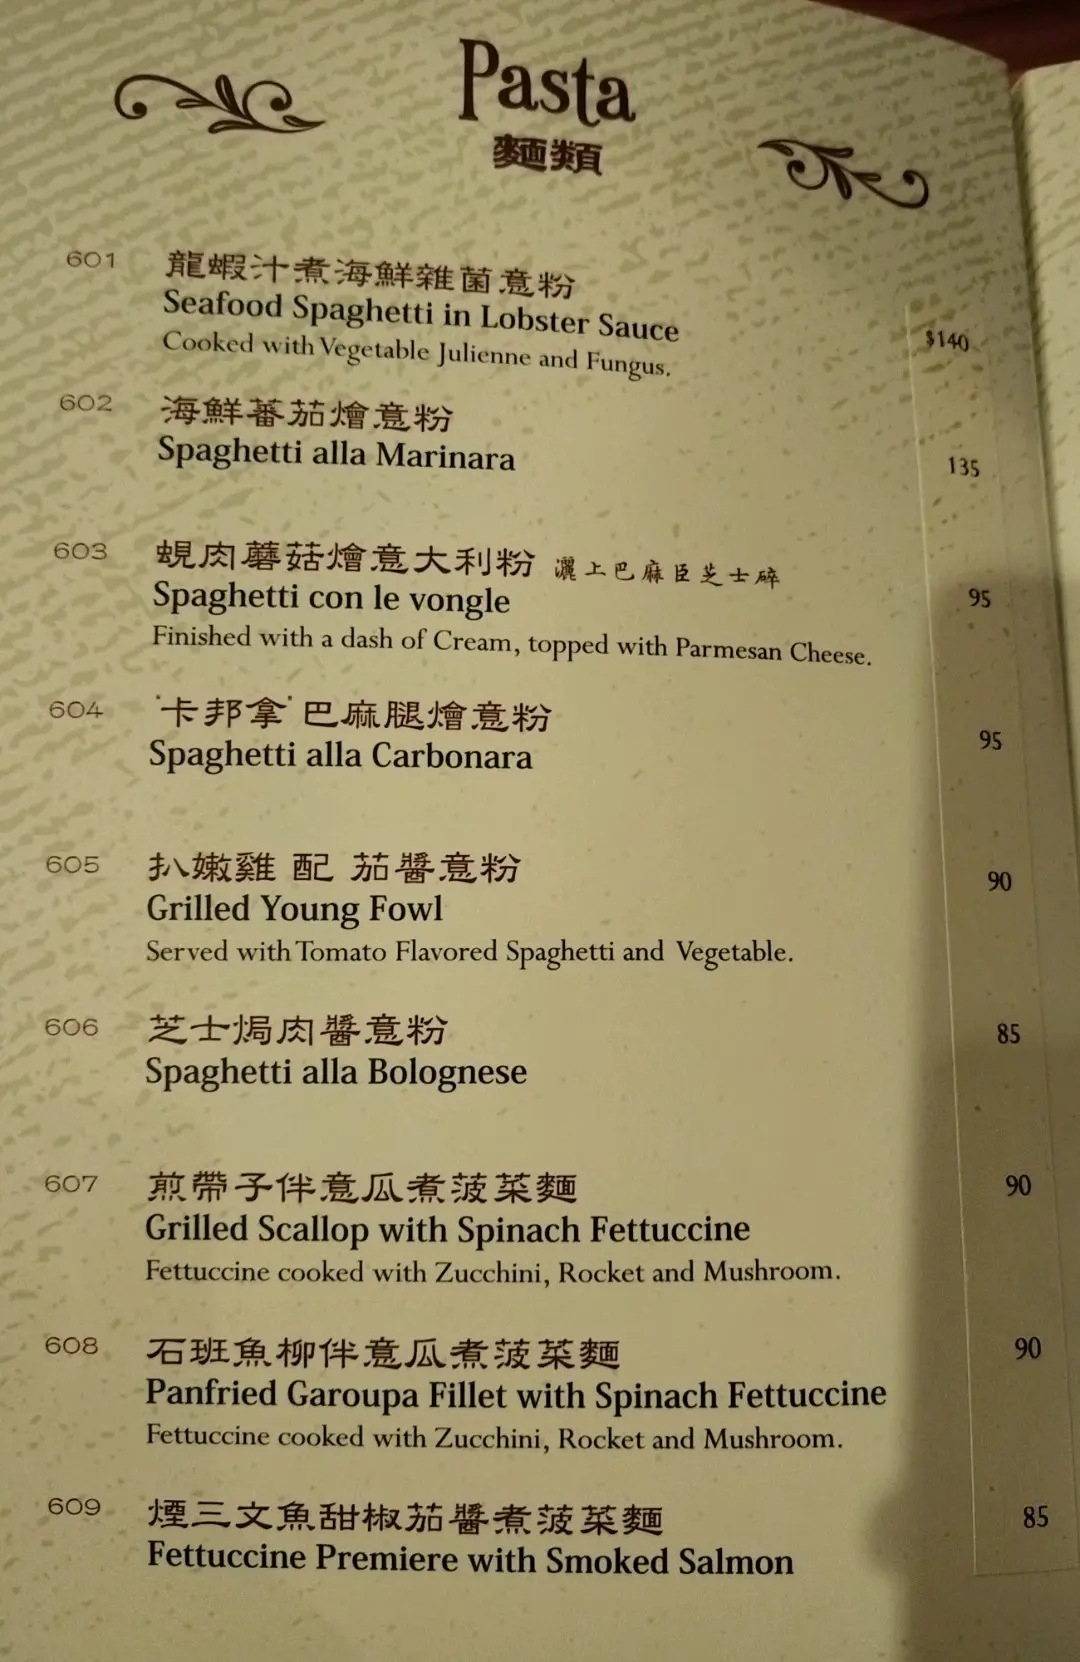 Pasta
麵類
601 龍蝦汁煮海鮮雜菌意粉
Seafood Spaghetti in Lobster Sauce
Cooked with Vegetable Julienne and Fungus.
$140
602 海鮮蕃茄燴意粉
Spaghetti alla Marinara
135
603 蜆肉蘑菇燴意大利粉 灑上巴麻臣芝士碎
Spaghetti con le vongle
95
Finished with a dash of Cream, topped with Parmesan Cheese.
604 '卡邦拿'巴麻腿燴意粉
Spaghetti alla Carbonara
95
605 扒嫩雞 配 茄醬意粉
Grilled Young Fowl
90
Served with Tomato Flavored Spaghetti and Vegetable.
606 芝士焗肉醬意粉
Spaghetti alla Bolognese
85
607 煎帶子伴意瓜煮菠菜麵
Grilled Scallop with Spinach Fettuccine
90
Fettuccine cooked with Zucchini, Rocket and Mushroom.
608 石班魚柳伴意瓜煮菠菜麵
Panfried Garoupa Fillet with Spinach Fettuccine
90
Fettuccine cooked with Zucchini, Rocket and Mushroom.
609 煙三文魚甜椒茄醬煮菠菜麵
Fettuccine Premiere with Smoked Salmon
85